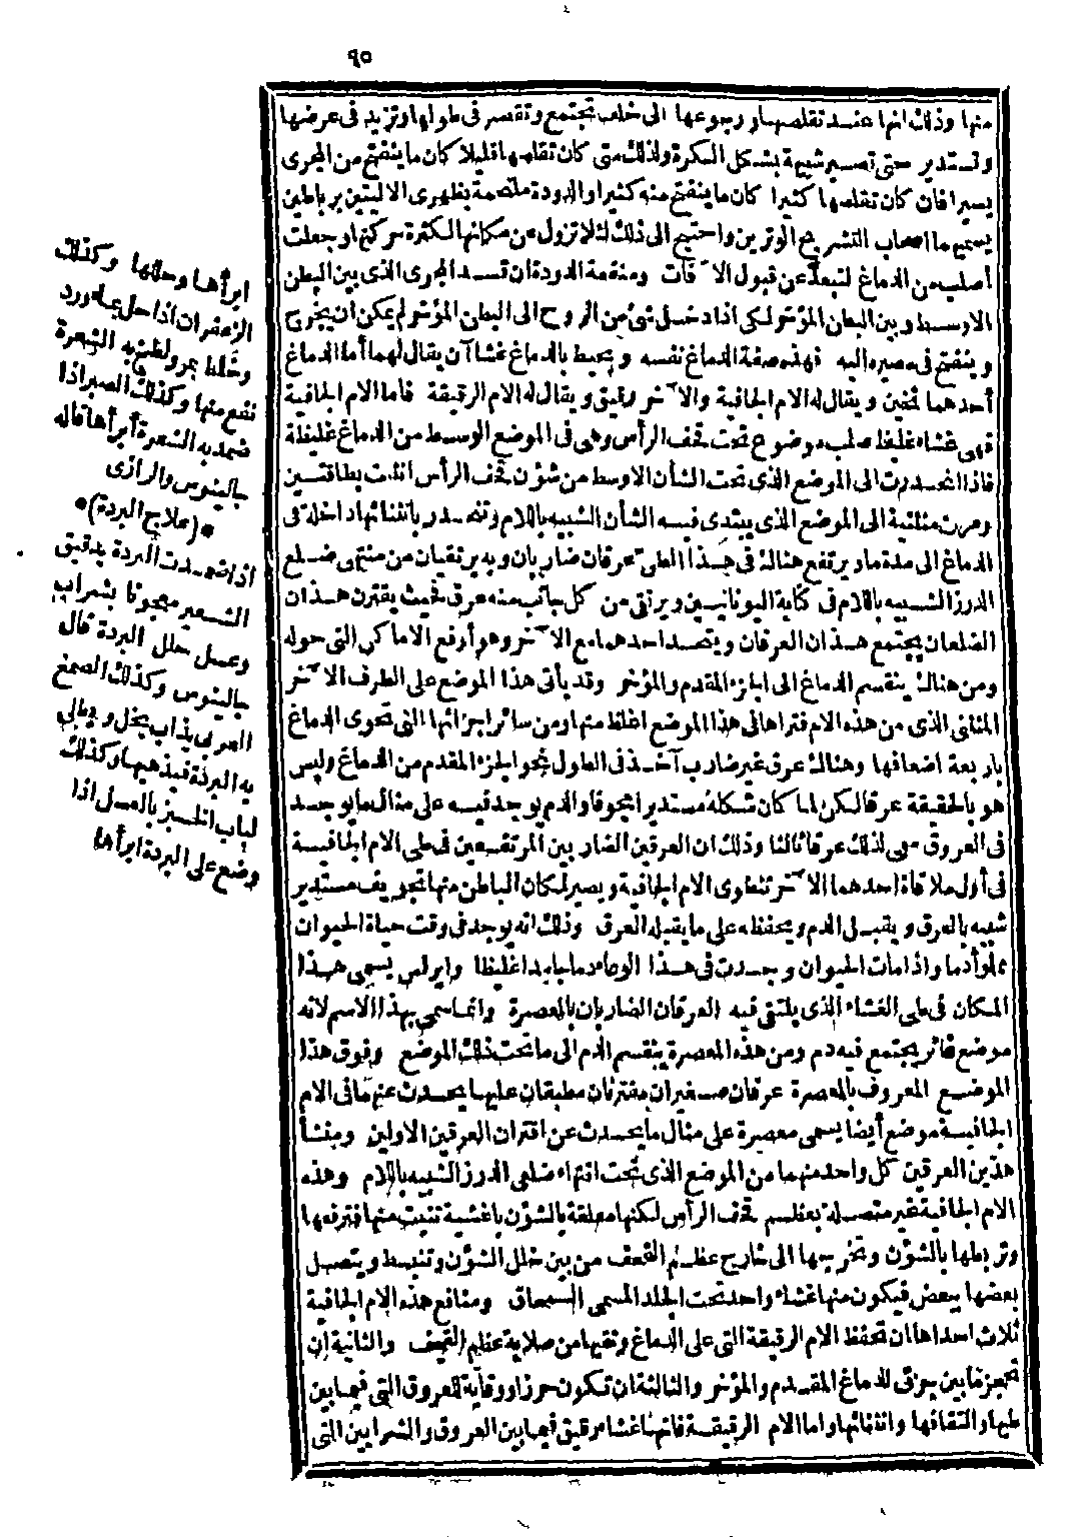 ٩٥
منها وذلك انها عند تقلصها ورجوعها الى خلف تجتمع وتقصر فى طولها وتزيد فى عرضها
وتستدير حتى تصير شبيهة بشكل الكرة ولذلك متى كان تقلصها قليلا كان ما ينفتح من المجرى
يسيرا فان كان تقلصها كثيرا كان ما ينفتح منه كثيرا والدودة ملتحمة بظهرى الاليتين برباطين
يسميهما اصحاب التشريح الوترين واحتيج الى ذلك لئلا تزول عن مكانها لكثرة حركتها وجعلت
أصلب من الدماغ لتبعد عن قبول الآفات ومنفعة الدودة ان تسد المجرى الذى بين البطن
الاوسط وبين البطن المؤخر لكى اذا دخل شئ من الروح الى البطن المؤخر لم يمكن ان يخرج
وينفتح فى مصيره اليه فهذه صفة الدماغ نفسه ويحيط بالدماغ غشاآن يقال لهما أما الدماغ
أحدهما ثخين ويقال له الام الجافية والآخر رقيق ويقال له الام الرقيقة فاما الام الجافية
فهى غشاء غليظ صلب موضوع تحت قحف الرأس وهى فى الموضع الوسط من الدماغ غليظة
فاذا انحدرت الى الموضع الذى تحت الشأن الاوسط من شؤن قحف الرأس انثنت بطاقتين
ومرت منثنية الى الموضع الذى يبتدى فيه الشأن الشبيه باللام وتنحدر بانثنائها داخلة فى
الدماغ الى مدة ما ويرتفع هنالك فى هذا الطى عرقان ضاربان وبه يرتقيان من منتهى ضلع
الدرز الشبيه باللام فى كتابة اليونانيين ويرتقى من كل جانب منه عرق فحيث يقترن هذان
الضلعان يجتمع هذان العرقان ويتحد احدهما مع الآخر وهو أرفع الاماكن التى حوله
ومن هنالك ينقسم الدماغ الى الجزء المقدم والمؤخر وقد يأتى هذا الموضع على الطرف الآخر
المثانى الذى من هذه الام فتراها فى هذا الموضع اغلظ منها ومن سائر اجزائها التى تحوى الدماغ
باربعة اضعافها وهنالك عرق غير ضارب آخذ فى الطول نحو الجزء المقدم من الدماغ وليس
هو بالحقيقة عرقا لكن لما كان شكله مستديرا مجوفا والدم يوجد فيه على مثال ما يوجد
فى العروق سمى لذلك عرقا ثالثا وذلك ان العرقين الضاربين المرتفعين فى طى الام الجافية
فى أول ملاقاة احدهما الآخر تنطوى الام الجافية ويصير لمكان الباطن منها تجويف مستدير
شبيه بالعرق ويقبل الدم ويحفظه على ما يقبله العرق وذلك انه يوجد فى وقت حياة الحيوان
مملوأ دما واذا مات الحيوان وجدت فى هذا الوعاء دما جامدا غليظا وايرلس يسمى هذا
المكان فى طى الغشاء الذى يلتقى فيه العرقان الضاربان بالمعصرة وانما سمى بهذا الاسم لانه
موضع غائر يجتمع فيه دم ومن هذه المعصرة ينقسم الدم الى ما تحت ذلك الموضع وفوق هذا
الموضع المعروف بالمعصرة عرقان صغيران مقترنان مطبقان عليها يحدث عنهما فى الام
الجافية موضع أيضا يسمى معصرة على مثال ما يحدث عن اقتران العرقين الاولين ومنشأ
هذين العرقين كل واحد منهما من الموضع الذى تحت انتهاء ضلعى الدرز الشبيه باللام وهذه
الام الجافية غير متصلة بعظم قحف الرأس لكنها معلقة بالشؤن باغشية تنبت منها فترفعها
وتربطها بالشؤن وتخرجها الى خارج عظم القحف من بين خلل الشؤن وتنبسط ويتصل
بعضها ببعض فيكون منها غشاء واحد تحت الجلد المسمى السمحاق ومنافع هذه الام الجافية
ثلاث احداها ان تحفظ الام الرقيقة التى على الدماغ وتقيها من صلابة عظم القحف والثانية ان
تحجز ما بين جزئى الدماغ المقدم والمؤخر والثالثة ان تكون حرزا ووقاية للعروق التى فيما بين
طيها والتفافها وانثنائها واما الام الرقيقة فانها غشاء رقيق فيما بين العروق والشرايين التى
ابرأها وحللها وكذلك
الزعفران اذا حل بماء ورد
وخلط بمر ولطخ به الشعرة
نفع منها وكذلك الصبر اذا
ضمد به الشعرة أبرأها قاله
جالينوس والرازى
*(علاج البردة)*
اذا ضمدت البردة بدقيق
الشعير معجونا بشراب
وعسل حلل البردة قال
جالينوس وكذلك الصمغ
العربى يذاب بخل ويطلى
به البردة فيذهبها وكذلك
لباب الخبز بالعسل اذا
وضع على البردة ابرأها